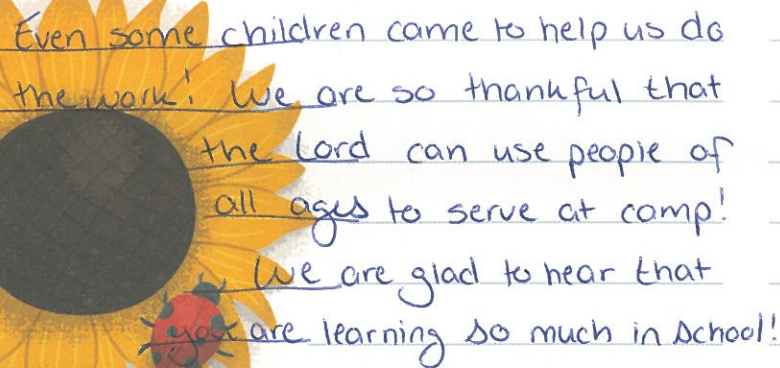 Even some children came to help us do
the work! We are so thankful that
the Lord can use people of
all ages to serve at camp!
We are glad to hear that
you are learning so much in school!